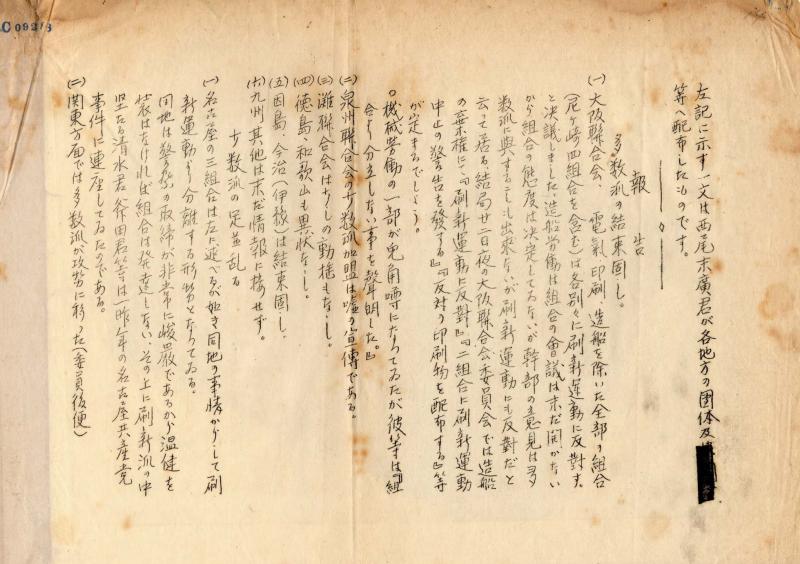 C09218
左記に示す一文は西尾末廣君が各地方の團体及
等へ配布したものです。
報告
多数派の結束固し。
(一) 大阪聯合会、電氣、印刷、造船を除いた全部の組合
(尼ヶ崎四組合を含む)は各別々に刷新運動に反対す。
と決議しました、造船労働は組合の會議は未だ開かない
から組合の態度は決定してゐないが幹部の意見は多
数派に與することも出来ないが刷新運動にも反對だと
云って居る結局廿二日夜の大阪聯合会委員会では造船
の棄権に『刷新運動に反対』『二組合に刷新運動
中止の警告を發する』『反対の印刷物を配布する』等
が定まるでしょう。
○機械労働の一部が兎角噂になってゐたが彼等は『組
合より分立しない事を聲明した。』
(二) 泉州聯合会の少数派加盟は嘘の宣傳である。
(三) 灘聯合会は少しの動揺もなし。
(四) 徳島、和歌山も異状なし。
(五) 因島、今治(伊豫)は結束固し。
(六) 九州其他は未だ情報に接せず。
少数派の足並乱る
(一) 名古屋の三組合は左に述べるが如き同地の事情からして刷
新運動より分離する形勢となってゐる。
同地は警察の取締が非常に峻嚴であるから温健を
装はなければ組合は発達しない、その上に刷新派の中
堅たる清水君、等は一昨年の名古屋共産党
事件に連座してゐたのである。
(二) 関東方面では多数派が攻勢に移った(委員後便)